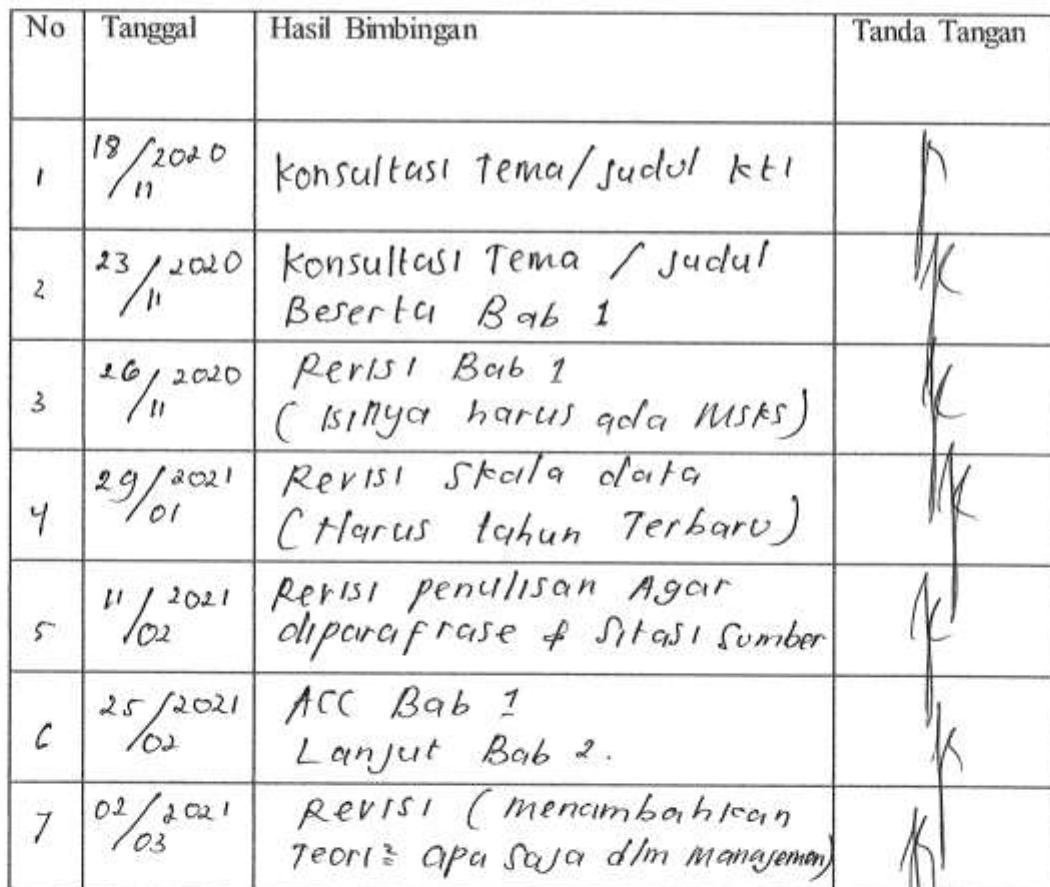 No Tanggal Hasil Bimbingan Tanda Tangan
1 18/11 2020 Konsultasi Tema/Judul kti
2 23/11 2020 Konsultasi Tema / Judul
Beserta Bab 1
3 26/11 2020 Revisi Bab 1
(Isinya harus ada MSKS)
4 29/01 2021 Revisi Skala data
(Harus tahun Terbaru)
5 11/02 2021 Revisi penulisan Agar
diparafrase & Sitasi Sumber
6 25/02 2021 ACC Bab 1
Lanjut Bab 2.
7 02/03 2021 Revisi (menambahkan
Teori² apa saja dlm manajemen)